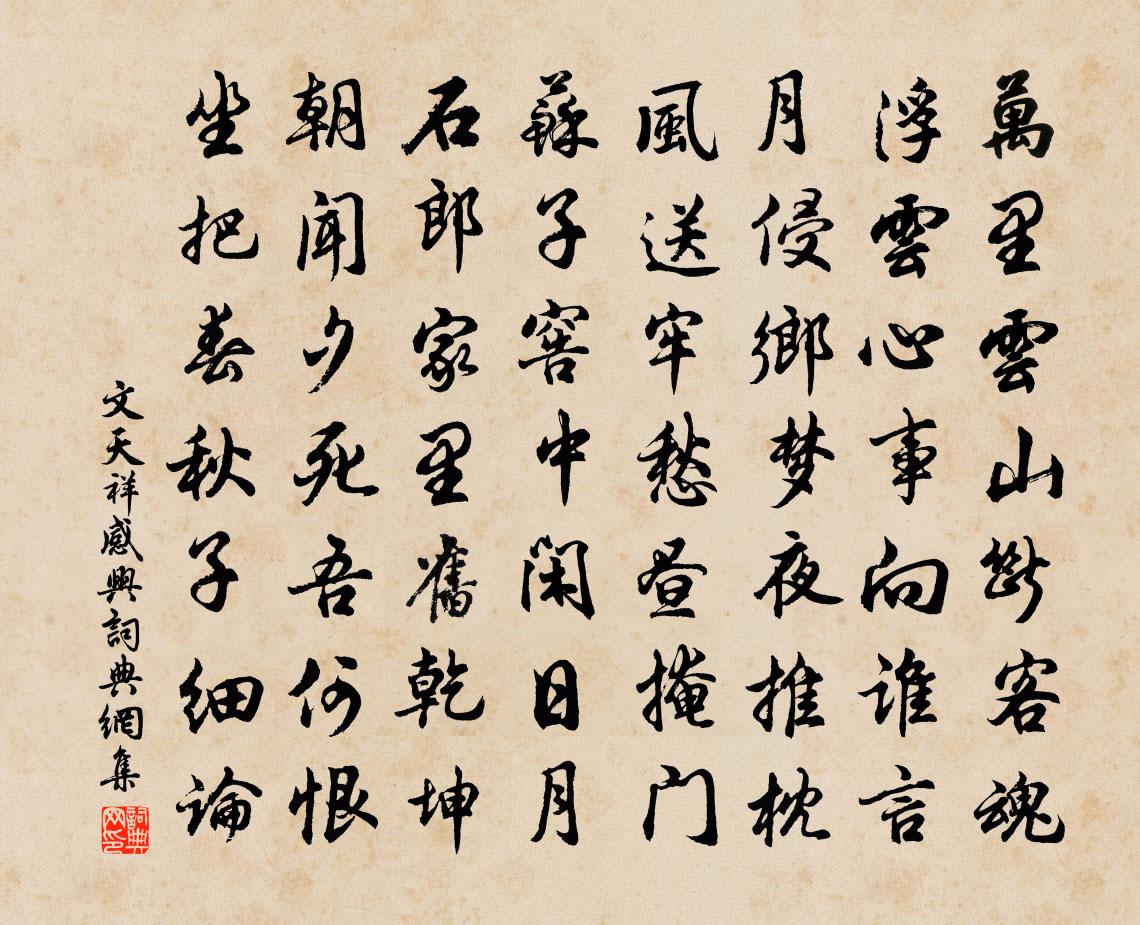 萬里雲山斷客魂
浮雲心事向誰言
月侵鄉梦夜推枕
風送牢愁晝掩门
蘇子窖中閑日月
石郎家里舊乾坤
朝聞夕死吾何恨
坐把春秋子細論
文天祥感興詞典網集
詞典网印